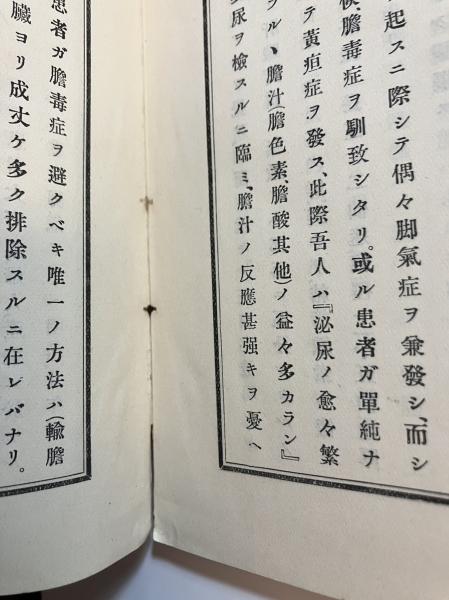 起スニ際シテ偶々脚氣症ヲ兼發シ、而シ
膽毒症ヲ馴致シタリ。或ル患者ガ單純ナ
テ黃疸症ヲ發ス、此際吾人ハ『泌尿ノ愈々繁
ラル丶膽汁(膽色素、膽酸其他)ノ益々多カラン』
尿ヲ檢スルニ臨ミ、膽汁ノ反應甚强キヲ憂ヘ
患者ガ膽毒症ヲ避クベキ唯一ノ方法ハ(輸膽
臟ヨリ成丈ケ多ク排除スルニ在レバナリ。